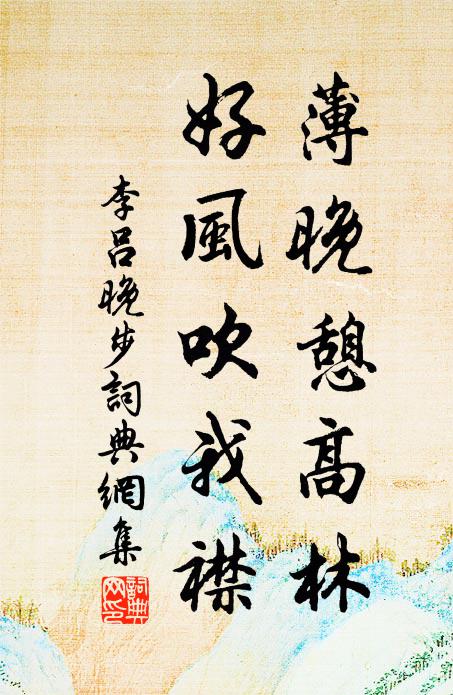 薄晚憩高林
好風吹我襟
李呂晚步詞典網集
詞典網印